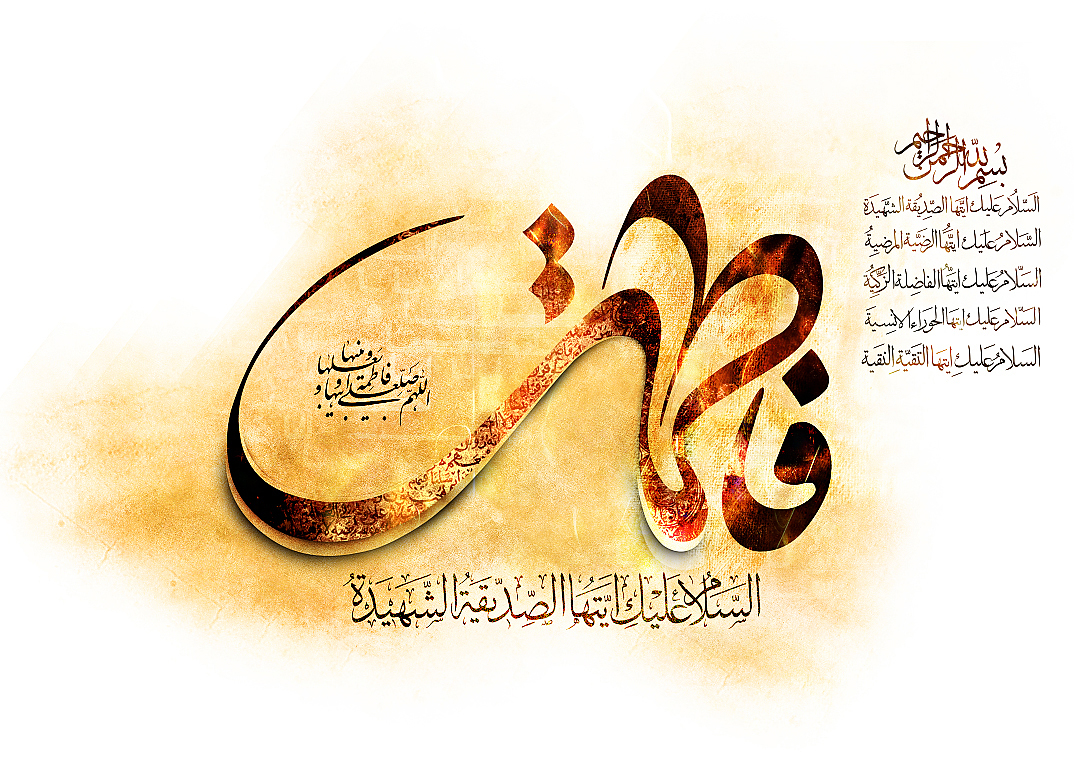 بِسْمِ اللهِ الرَّحْمنِ الرَّحيم
السَّلامُ عَليكِ ايَّتُها الصِّدِيقَة الشَّهيدَة
السَّلامُ عَليكِ ايَّتُها الرضيَّة المرضيةُ
السَّلامُ عَليكِ ايَّتُها الفاضِلة الزَّكيَّة
السَّلامُ عَليكِ ايتها الحوراء الانسية
السَّلامُ عَليكِ ايتها التَقيَّةِ النقية
فاطمة
اللهم صل على فاطمة و ابيها و بعلها و بنيها
السَّلامُ عَلَيْكِ ايَّتُهَا الصِّدّيقَةُ الشَّهَيدَةُ